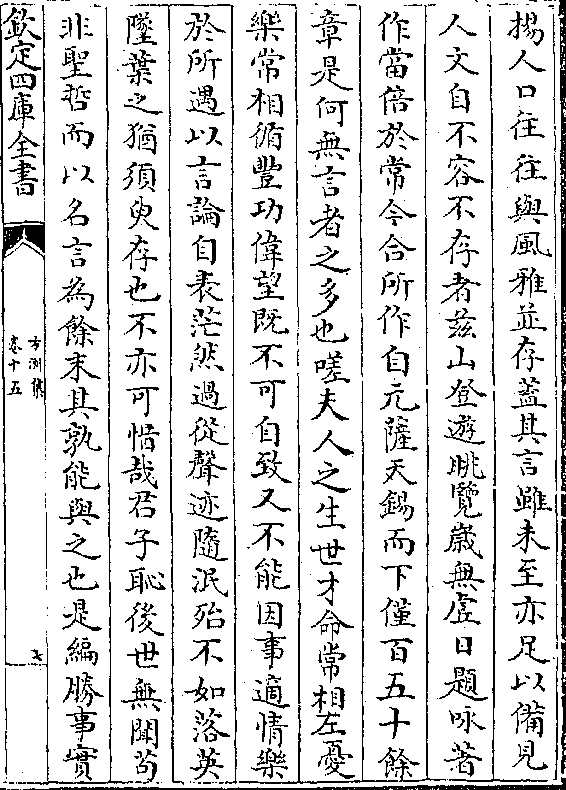 揚人口往往與風雅並存蓋其言雖未至亦足以備見
人文自不容不存者兹山登遊眺覽嵗無虚日題咏著
作當倍於常今合所作自元薩天錫而下僅百五十餘
章是何無言者之多也嗟夫人之生世才命常相左憂
樂常相循豐功偉望既不可自致又不能因事適情樂
於所遇以言論自表茫然過從聲迹隨泯殆不如落英
墜葉之猶須臾存也不亦可惜哉君子恥後世無聞茍
非聖哲而以名言為餘末其孰能與之也是編勝事實
欽定四庫全書
方洲集
卷十五
七